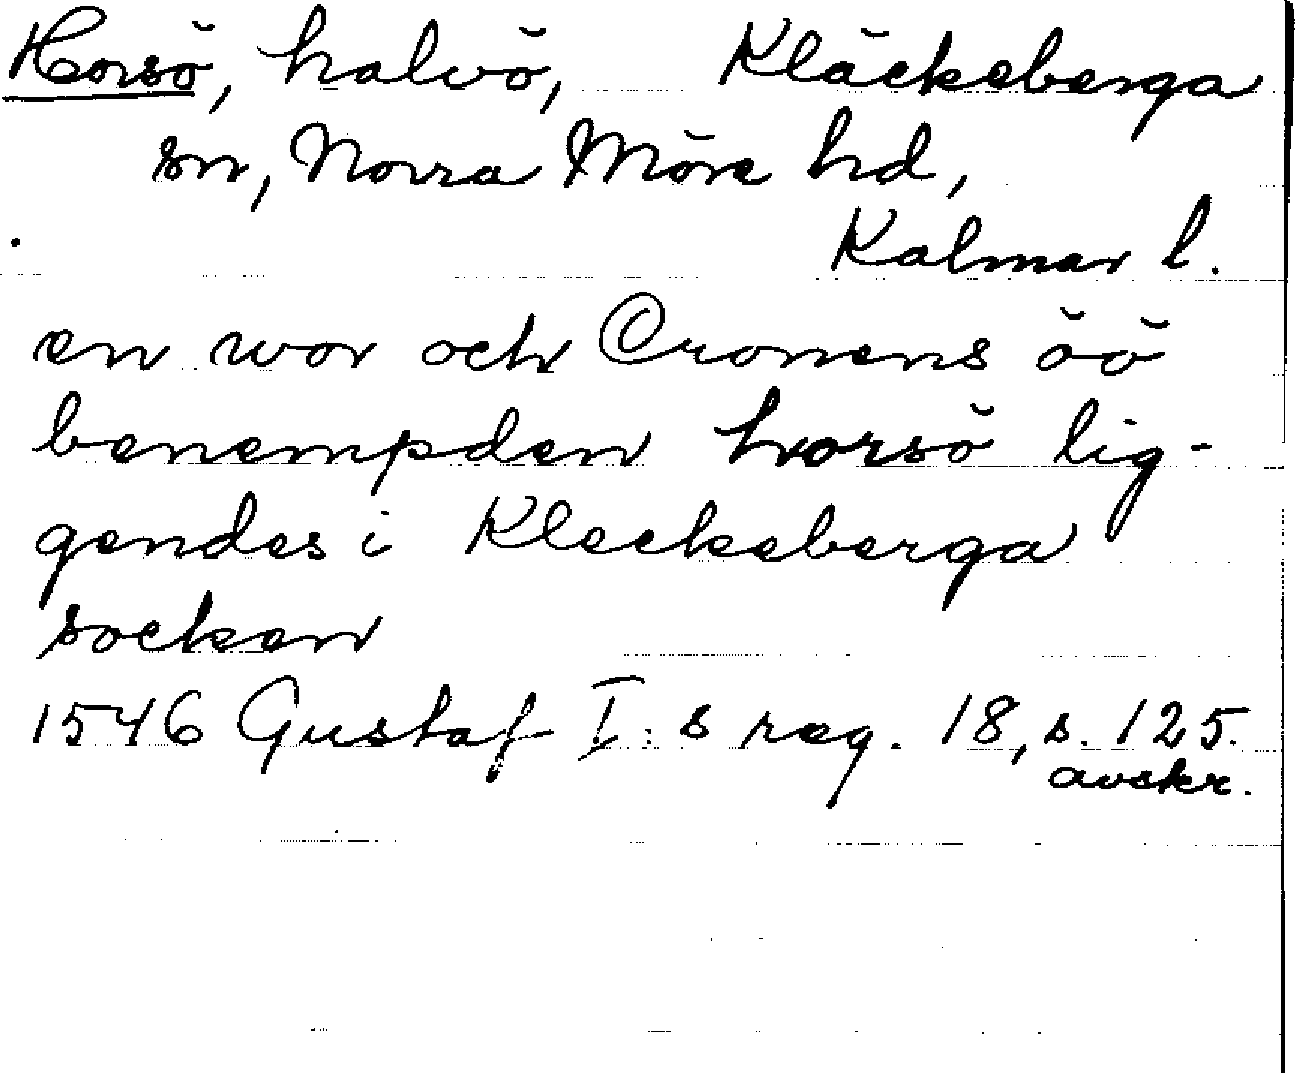 Horsö, halvö, Kläckeberga
sn, Norra Möre hd,
Kalmar l.
en wor och Cronens öö
benempden horsö lig-
gendes i Kleckeberga
socken
1546 Gustaf I:s reg. 18, s. 125.
avskr.